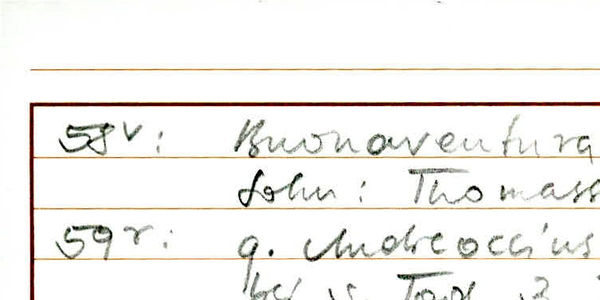 58v: Buonaventura
Sohn: Thomass
59r: g. Andreoccius